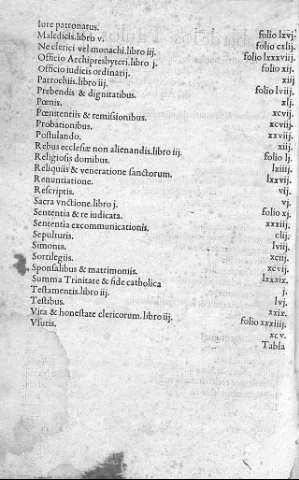 Iure patronatus. folio lxvj.
Maledicis.libro v. folio cxlij.
Ne clerici vel monachi.libro iij. folio lxxxviij.
Officio Archipresbyteri.libro j. folio xij.
Officio iudicis ordinarij. xiij
Parrochijs.libro iij. folio lviij.
Prebendis & dignitatibus. xlj.
Pœnis. xcvij.
Pœnitentiis & remissionibus. xcviij.
Probationibus. xxvij.
Postulando. xiij.
Rebus ecclesiæ non alienandis.libro iij. folio lj.
Religiosis domibus. lxiiij.
Reliquiis & veneratione sanctorum. lxxvij.
Renuntiatione. vij.
Rescriptis. vj.
Sacra vnctione.libro j. folio xj.
Sententia & re iudicata. xxxiij.
Sententia excommunicationis. clij.
Sepulturis. lviij.
Simonia. xciij.
Sortilegiis. xcvij.
Sponsalibus & matrimoniis. lxxxix.
Summa Trinitate & fide catholica j.
Testamentis.libro iij. lvj.
Testibus. xxix.
Vita & honestate clericorum.libro iij. folio xxxiij.
Vsuris. xcv.
Tabla